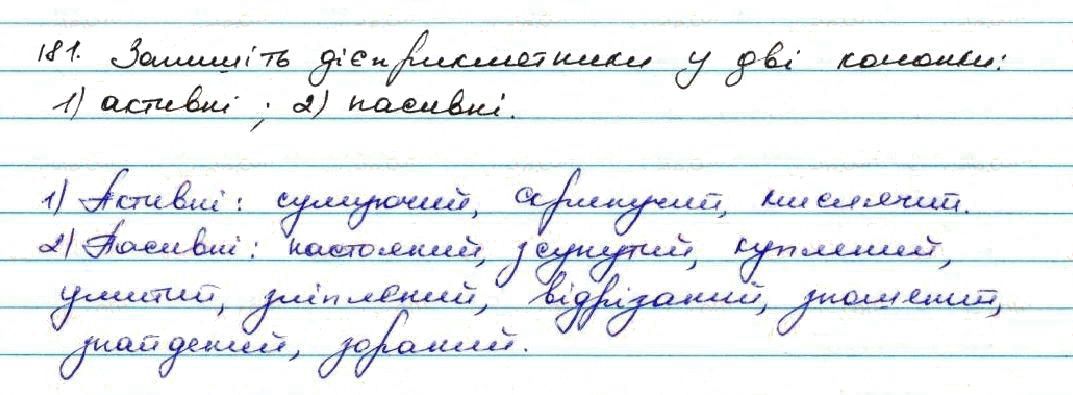 181. Запишіть дієприкметники у дві колонки:
1) активні ; 2) пасивні.
1) Активні: сумуючий, скрипучий, мислячий.
2) Пасивні: настояний, зсунутий, куплений,
умитий, зліплений, відрізаний, зношений,
знайдений, зораний.